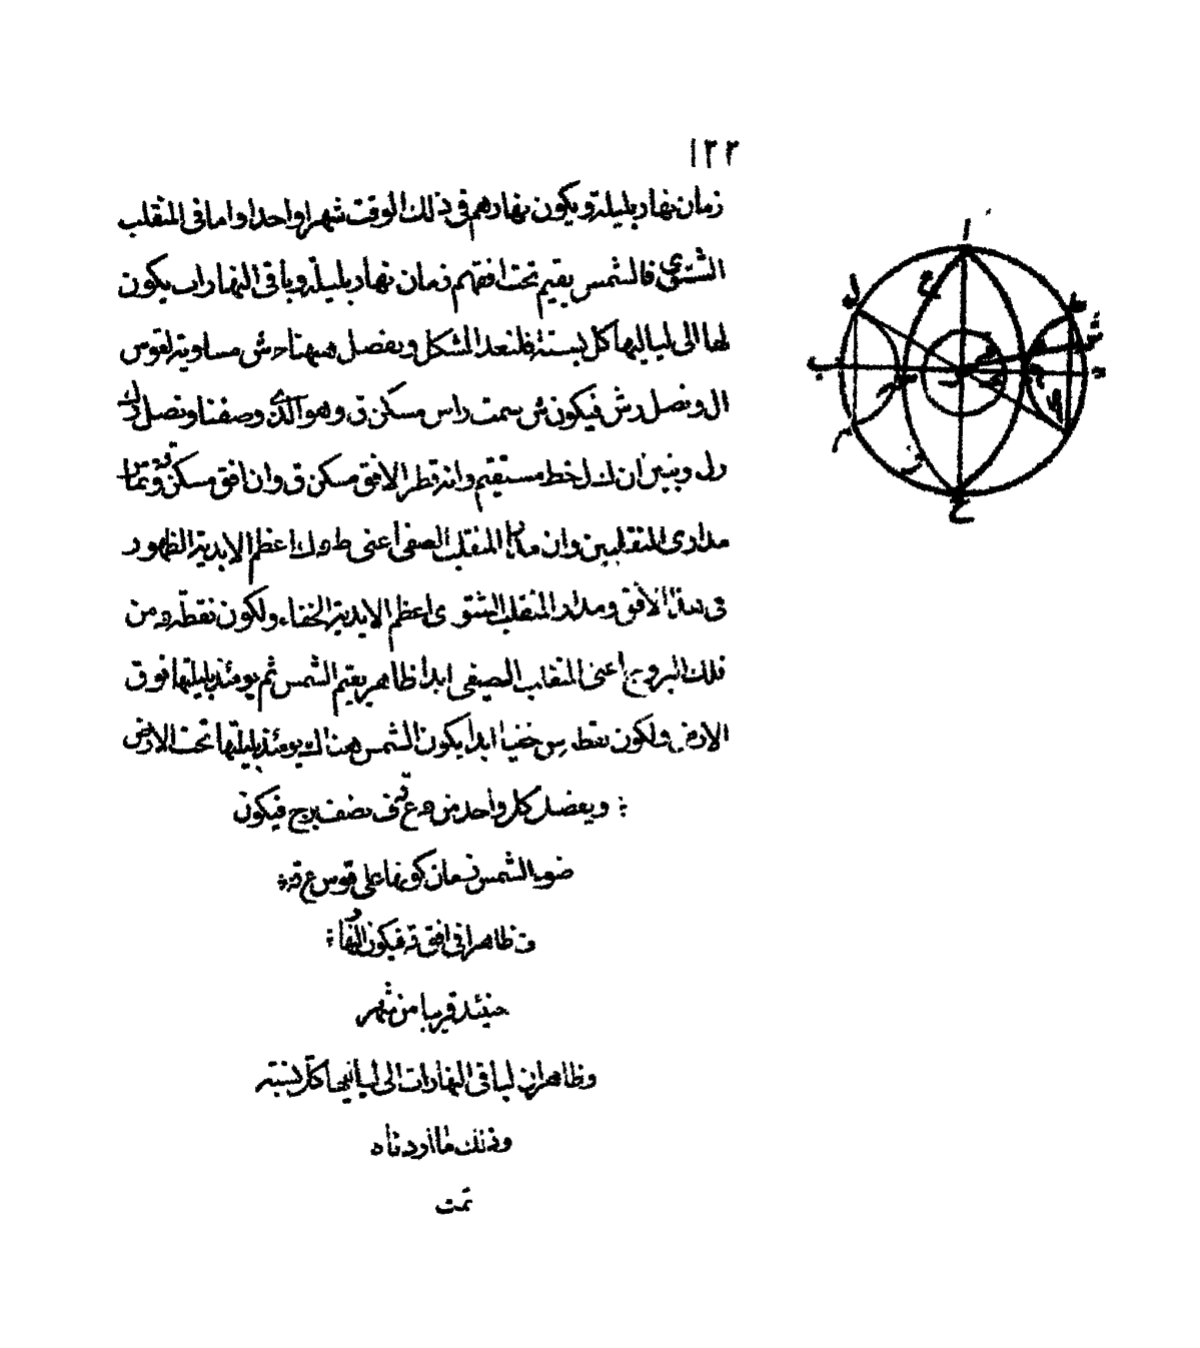 ١٢٢
زمان نهار بليلة ويكون نهارهم في ذلك الوقت شهرا واحدا واما في المنقلب
الشتوي فالشمس يقيم تحت افقهم زمان نهار بليلة وباقى النهارات يكون
لها الى لياليها كل بسنة فلنعد الشكل ويفصل ههنا حـ ش مساوية لقوس
ا ل ونصل ر ش فيكون ش سمت راس مسكن ق وهو الذي وصفنا ونصل
ر ل وبين ان ك ل خط مستقيم وانه قطر الافق مسكن ق وان افق مسكن
مدارى المنقلبين وان مدار المنقلب الصيفى اعنى ط ه ك اعظم الابدية الظهور
فى هذا الأفق ومدار المنقلب الشتوى اعظم الابدية الخفاء ولكون نقطة ه من
فلك البروج اعنى المنقلب الصيفى ابدا ظاهر يقيم الشمس ثم يومئذ بليلتها فوق
الارض ولكون نقطة س خفيا ابدا يكون الشمس هناك يومئذ بليلتها تحت الارض
ويفصل كل واحد من ه ع ه ف نصف برج فيكون
ضوء الشمس زمان كونها على قوس ع ه
ف ظاهرا فى افق ق فيكون النهار
حينئذ قريبا من شهر
وظاهر ان لباقى النهارات الى لياليها كل بسنة
وذلك ما اردناه
تمت
ا
ع
ل
ط
ش
ب
ر
ف
ح
ك